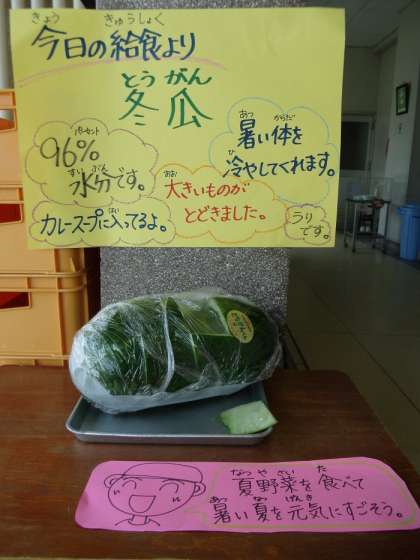 きょう きゅうしょく
今日の給食より
とうがん
冬瓜
パーセント
96%
すいぶん
水分です。
あつ からだ
暑い体を
ひ
冷やしてくれます。
おお
大きいものが
とどきました。
はい
カレースープに入ってるよ。
うり
です。
なつやさい た
夏野菜を食べて
あつ なつ げんき
暑い夏を元気にすごそう。